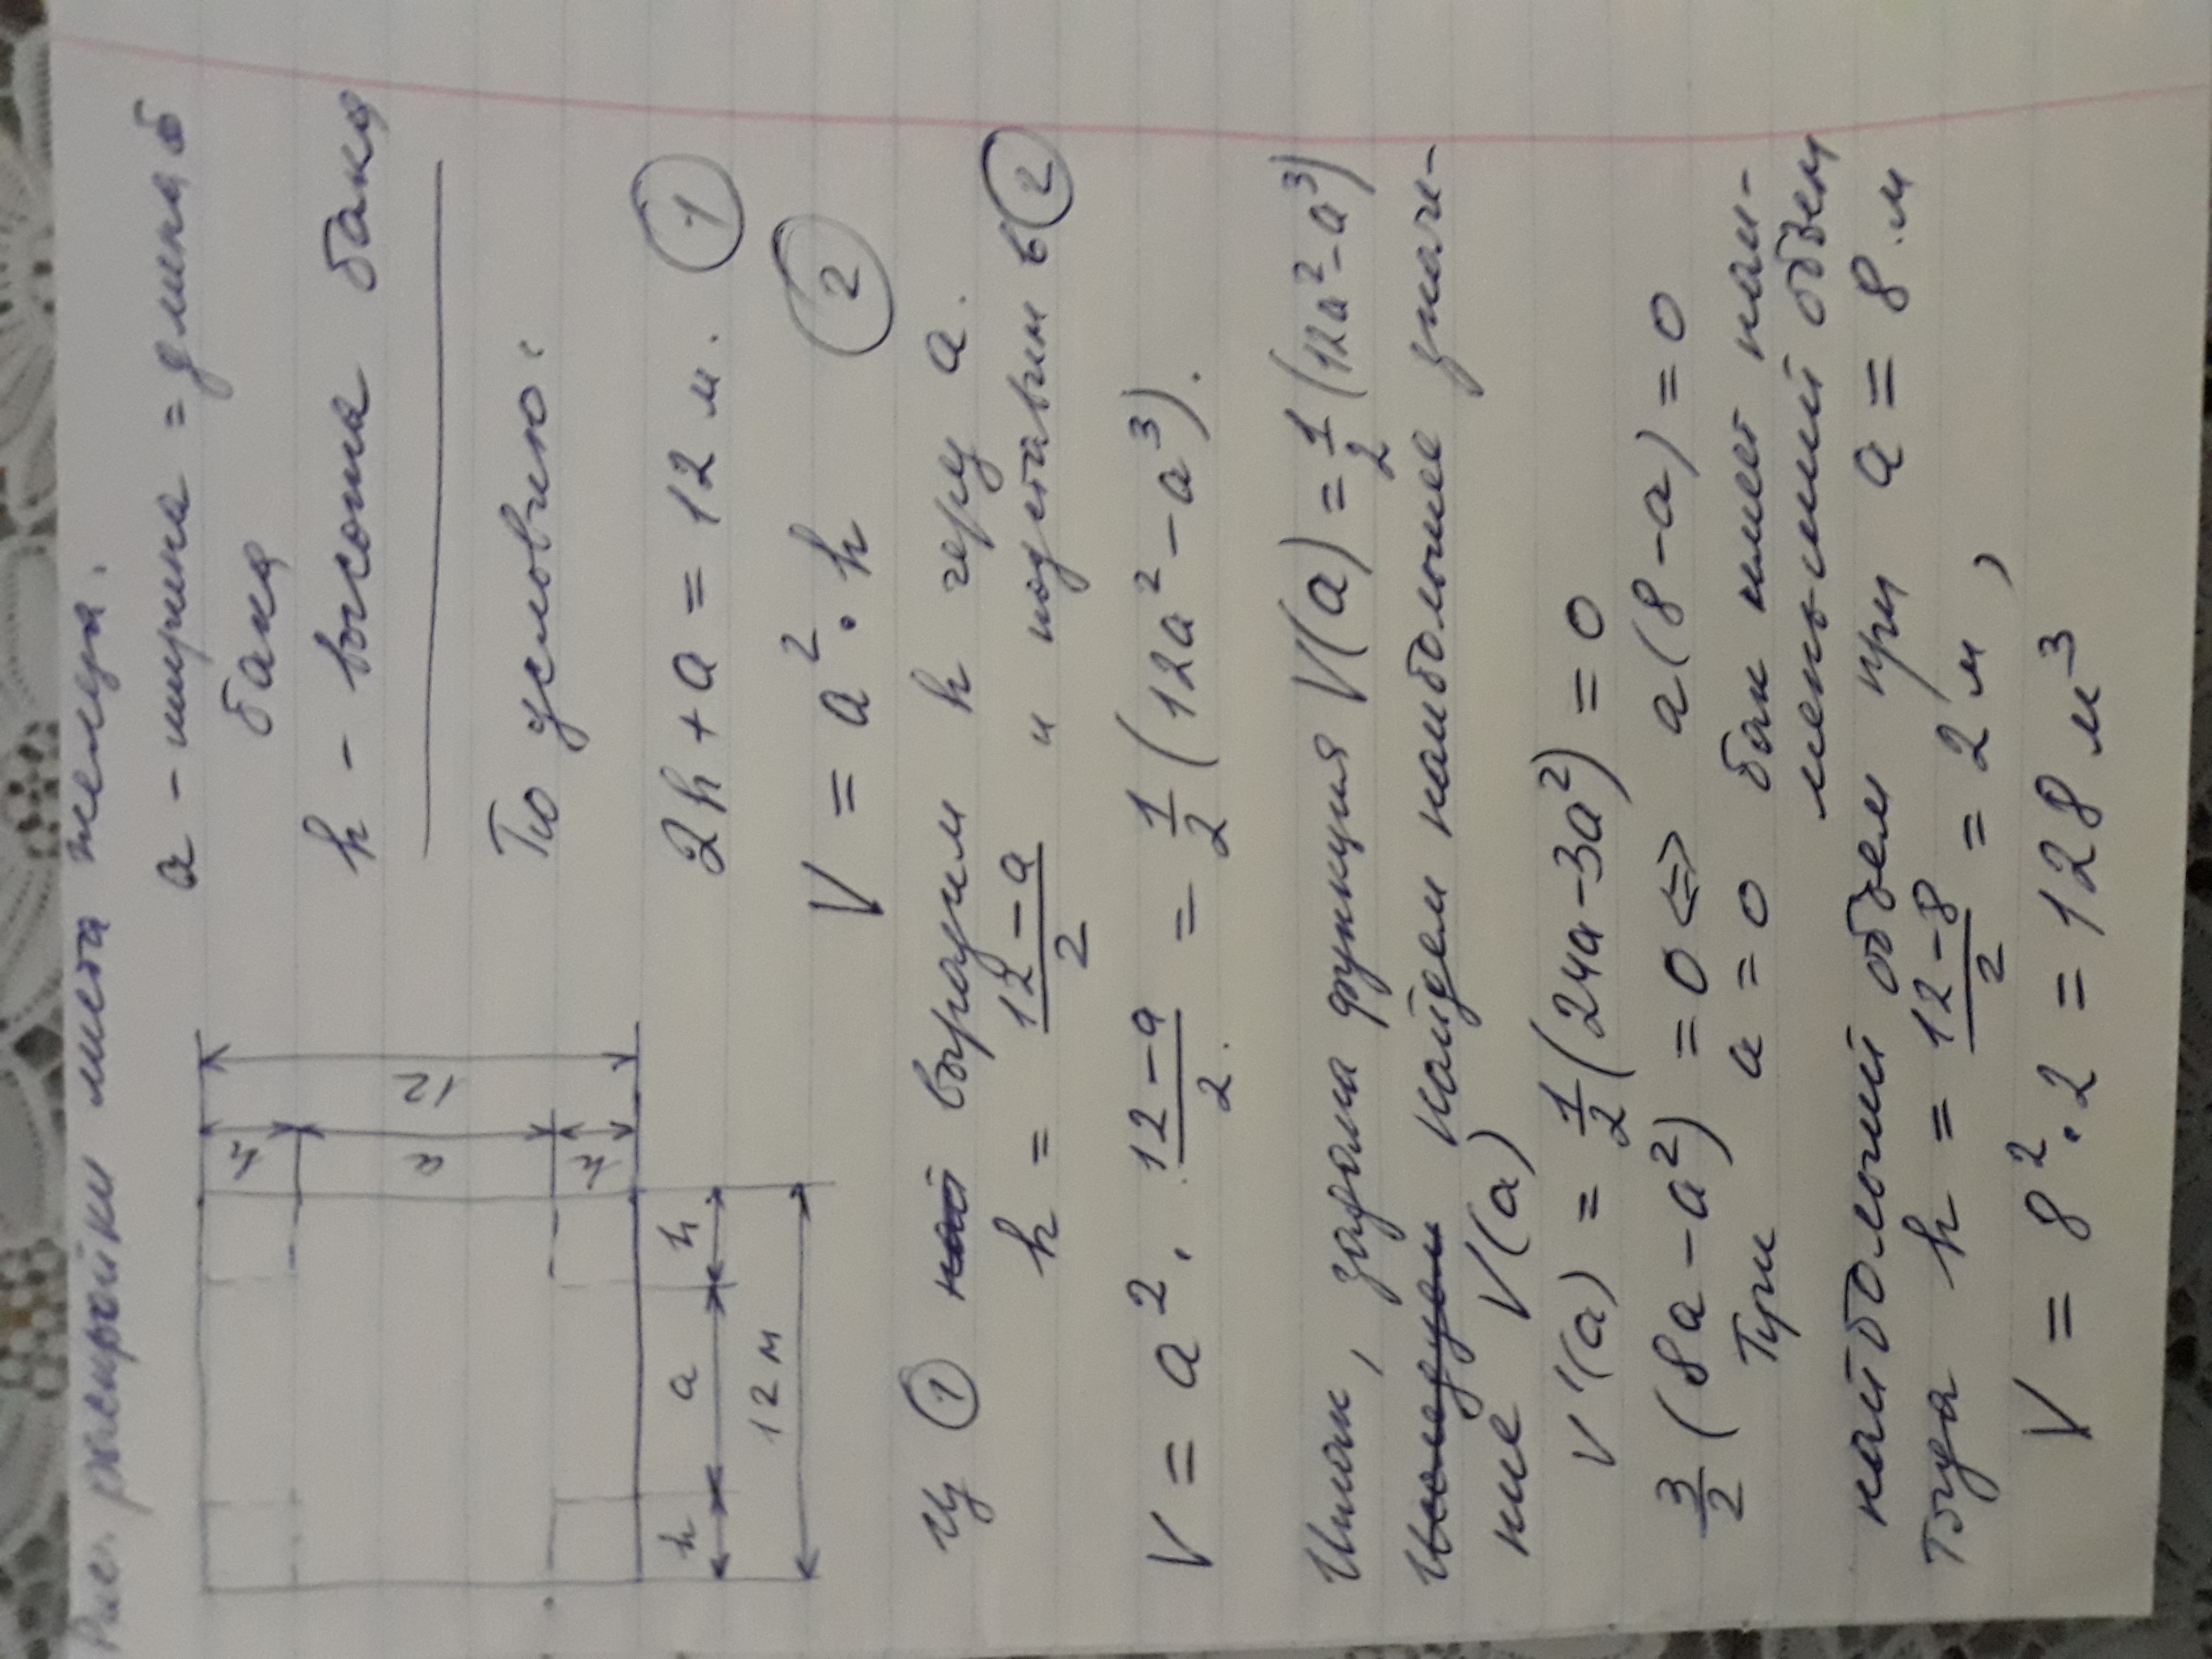 Рис. раскройки листа железа.
h
a
h
12
h
a
h
12 м
a - ширина = длина
бака
h - высота бака
По условию:
2h + a = 12 м. 1
V = a² · h 2
Из 1 выразим h через a.
h = (12 - a)/2 и подставим в 2
V = a² · (12 - a)/2 = 1/2 (12a² - a³).
Итак, задана функция V(a) = 1/2 (12a² - a³)
найдем наибольшее значе-
ние V(a)
V'(a) = 1/2 (24a - 3a²) = 0
3/2 (8a - a²) = 0 <=> a(8 - a) = 0
При a = 0 бак имеет наи-
меньший объем
наибольший объем при a = 8 м
Тогда h = (12 - 8)/2 = 2 м,
V = 8² · 2 = 128 м³